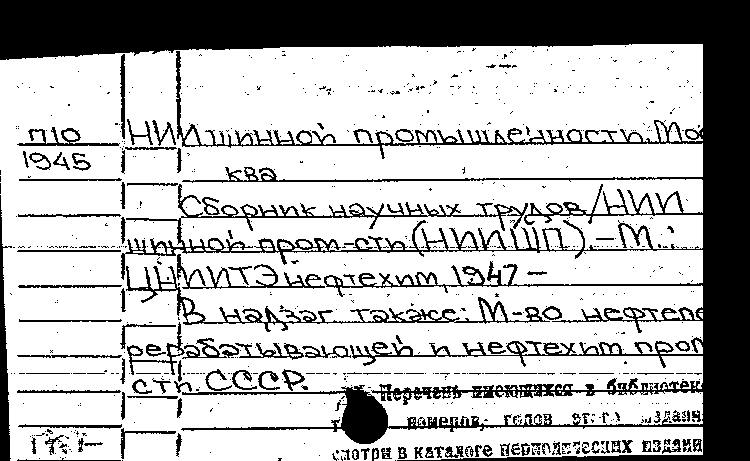 П10 НИИ шинной промышленности. Мос
1945
ква.
Сборник научных трудов / НИИ
шинной пром-сти (НИИШП). – М. :
ЦНИИТЭнефтехим, 1947 –
В надзаг также: М-во нефтепе
рерабатывающей и нефтехим пром
сти СССР.
Перечень имеющихся в библиотеке
номеров, годов этого издани
смотри в каталоге периодических издани